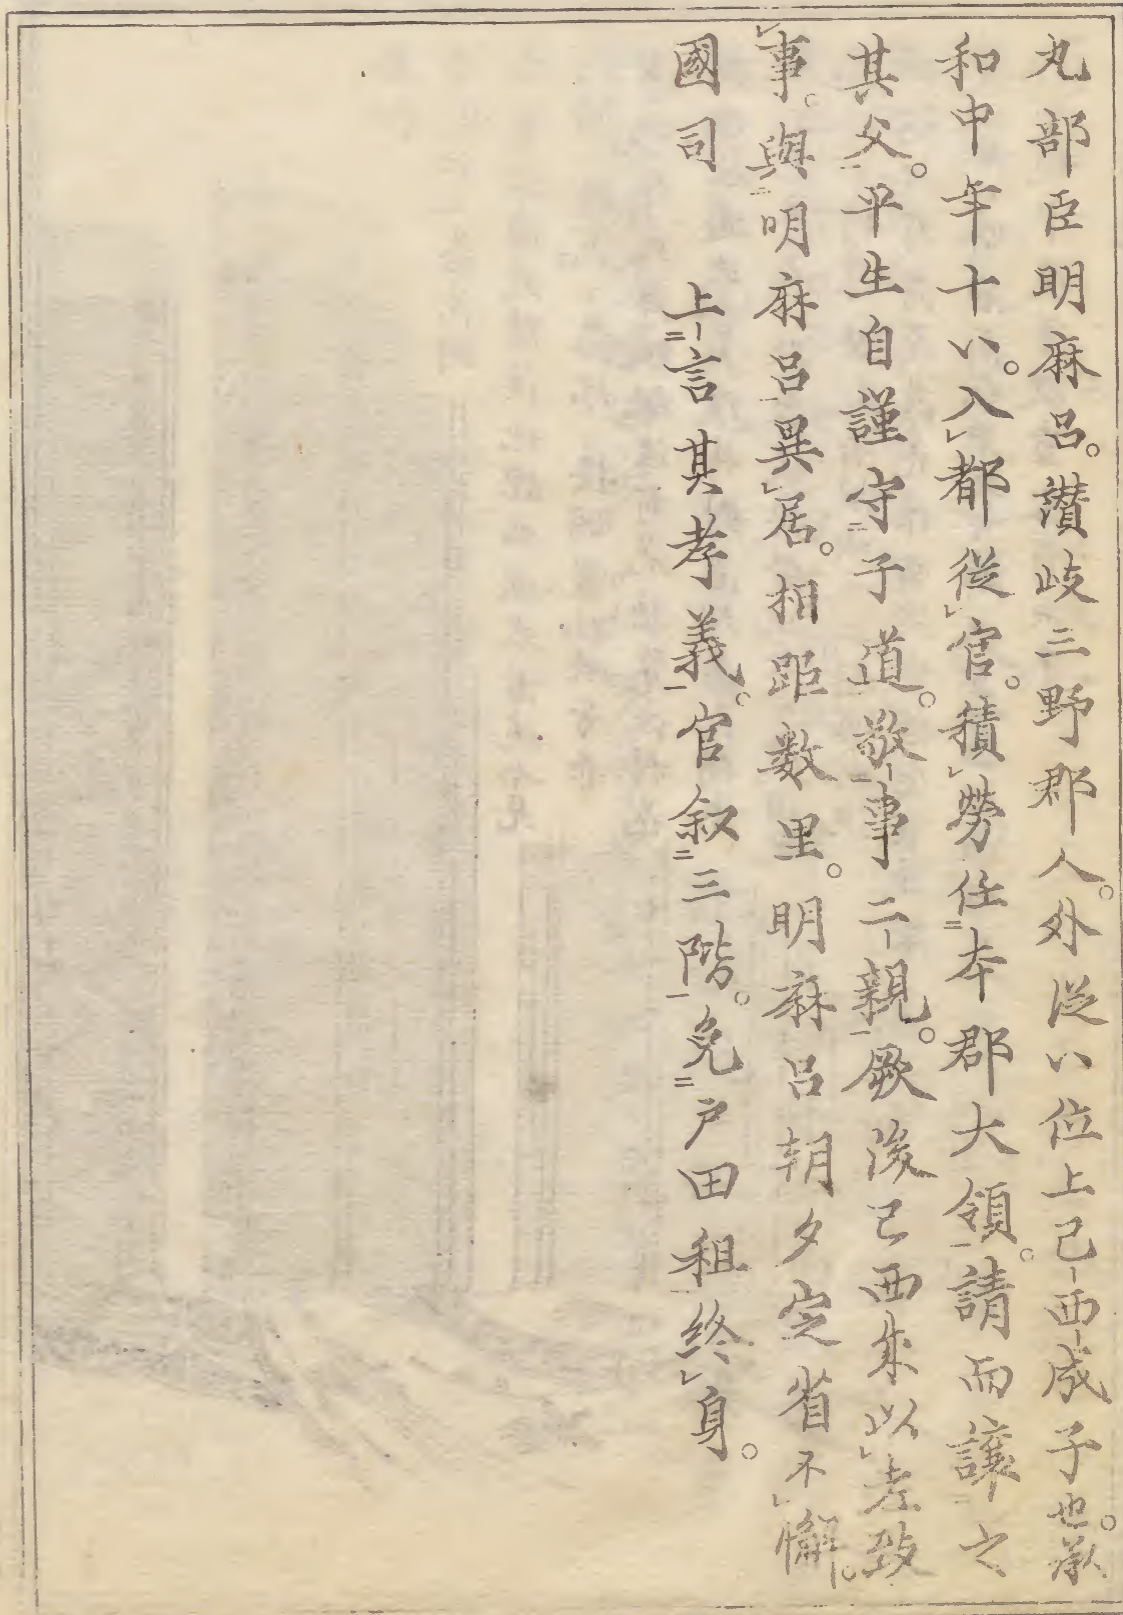 丸部臣明麻呂。讃岐三野郡人。外從八位上己西成子也。承
和中年十八。入都從官。積勞任本郡大領。請而讓之
其父。平生自謹守子道。敬事二親。厥後己西成以老致
事。與明麻呂異居。相距数里。明麻呂朝夕定省不懈。
國司　上言其孝義。官叙三階。免戸田租終身。